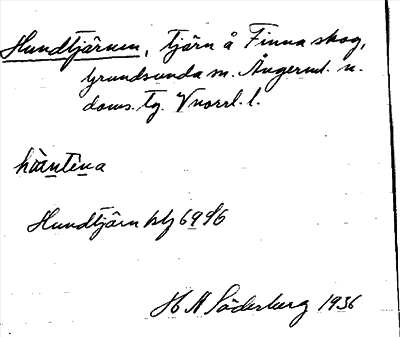 Hundtjärnen, tjärn å Finna skog,
Grundsunda sn. Ångerml. n.
doms. tg. Vnorrl. l.
hùntena
Hundtjärn blj 6996
H A Söderberg 1936